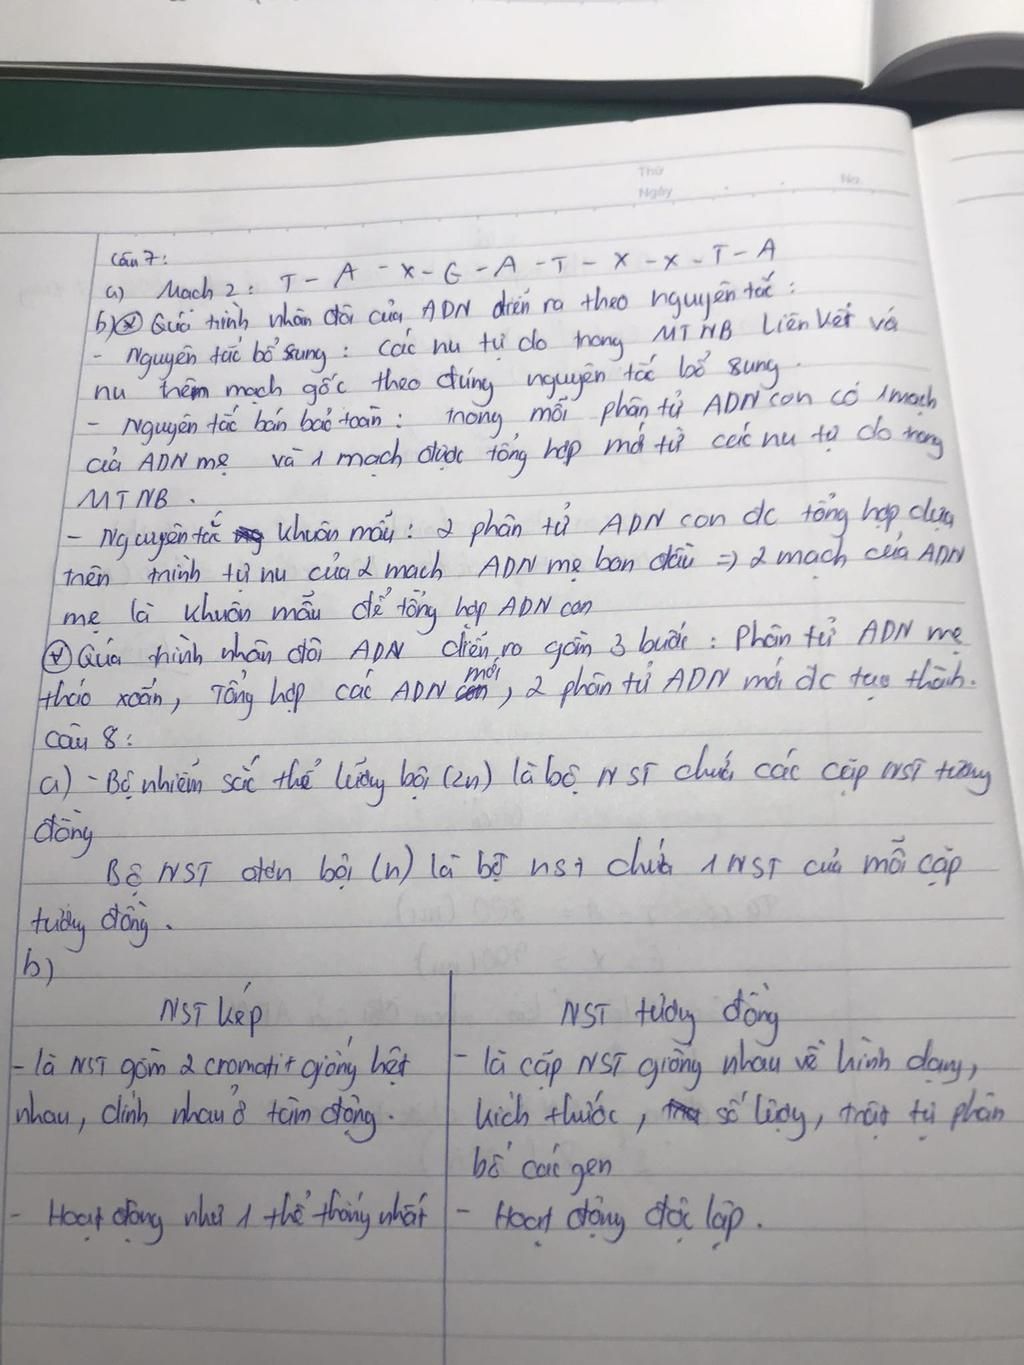 Thứ
Ngày No.
Câu 7:
a) Mạch 2: T - A - X - G - A - T - X - X - T - A
b) * Quá trình nhân đôi của ADN diễn ra theo nguyên tắc:
- Nguyên tắc bổ sung: các nu tự do trong MTNB liên kết vá
nu trêm mạch gốc theo đúng nguyên tắc bổ sung.
- Nguyên tắc bán bảo toàn: trong mỗi phân tử ADN con có 1 mạch
của ADN mẹ và 1 mạch được tổng hợp mới từ các nu tự do trong
MTNB.
- Nguyên tắc khuôn mẫu: 2 phân tử ADN con đc tổng hợp dựa
trên trình tự nu của 2 mạch ADN mẹ ban đầu => 2 mạch của ADN
mẹ là khuôn mẫu để tổng hợp ADN con
* Quá trình nhân đôi ADN diễn ra gồm 3 bước: Phân tử ADN mẹ
tháo xoắn, Tổng hợp các ADN mới, 2 phân tử ADN mới đc tạo thành.
Câu 8:
a) - Bộ nhiễm sắc thể lưỡng bội (2n) là bộ NST chứa các cặp NST tương
đồng
Bộ NST đơn bội (n) là bộ nst chứa 1 NST của mỗi cặp
tương đồng.
b)
NST kép
- là NST gồm 2 cromatit giống hệt
nhau, dính nhau ở tâm động.
- Hoạt động như 1 thể thống nhất
NST tương đồng
- là cặp NST giống nhau về hình dạng,
kích thước, số lượng, trật tự phân
bố các gen
- Hoạt động độc lập.